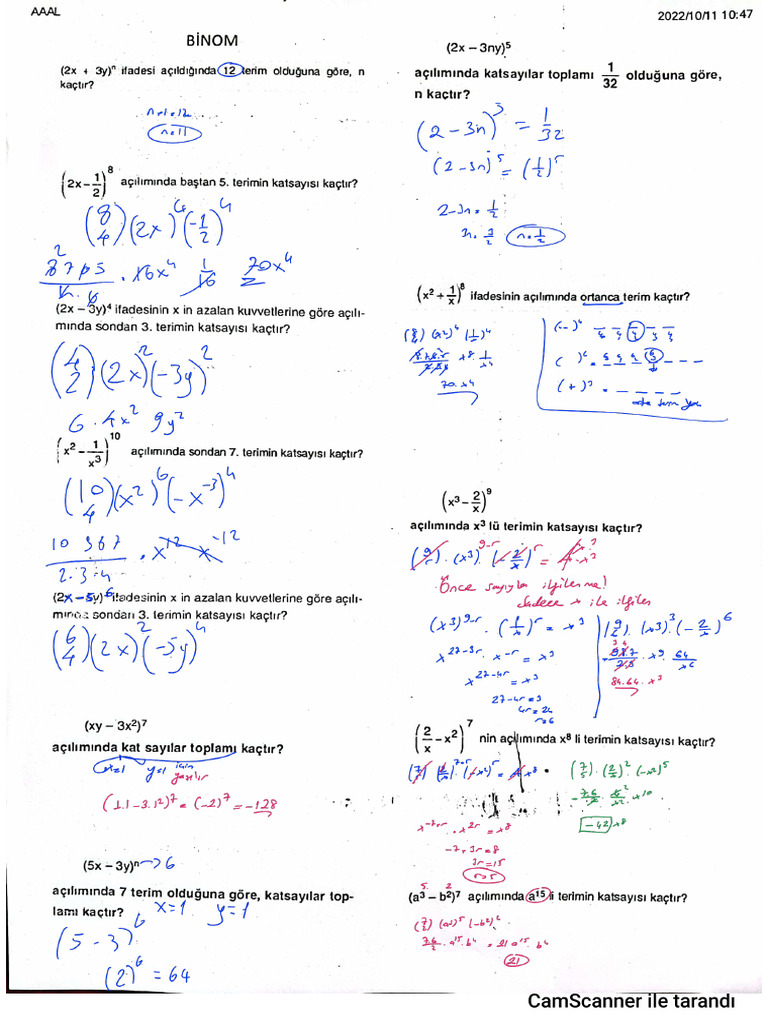 AAAL
2022/10/11 10:47
BİNOM
(2x + 3y)ⁿ ifadesi açıldığında 12 terim olduğuna göre, n
kaçtır?
n+1=12
n=11
(2x - 1/2)⁸ açılımında baştan 5. terimin katsayısı kaçtır?
(8 4) (2x)⁴ (-1/2)⁴
8 7 6 5 / 4 . 6 . 16x⁴ 1/16 70x⁴
(2x – 3y)⁴ ifadesinin x in azalan kuvvetlerine göre açılı-
mında sondan 3. terimin katsayısı kaçtır?
(4 2) (2x)² (-3y)²
6 . 4x² 9y²
(x² - 1/x³)¹⁰ açılımında sondan 7. terimin katsayısı kaçtır?
(10 4) (x²)⁶ (-x⁻³)⁴
10 9 8 7 / 2.3.4 . x¹² x⁻¹²
(2x – 5y)⁶ ifadesinin x in azalan kuvvetlerine göre açılı-
mında sondan 3. terimin katsayısı kaçtır?
(6 4) (2x)² (-5y)⁴
(xy – 3x²)⁷
açılımında kat sayılar toplamı kaçtır?
x=1 y=1 için
yazılır
(1.1 - 3.1²)⁷ = (-2)⁷ = -128
(5x – 3y)ⁿ → 6
açılımında 7 terim olduğuna göre, katsayılar top-
lamı kaçtır? x=1 y=1
(5 - 3)⁶
(2)⁶ = 64
(2x – 3ny)⁵
açılımında katsayılar toplamı 1/32 olduğuna göre,
n kaçtır?
(2 - 3n)⁵ = 1/32
(2 - 3n)⁵ = (1/2)⁵
2 - 3n = 1/2
3n = 3/2 n = 1/2
(x² + 1/x)⁸ ifadesinin açılımında ortanca terim kaçtır?
(8 4) (x²)⁴ (1/x)⁴
x⁸ . 1/x⁴
70.x⁴
orta terim yok
(x³ - 2/x)⁹
açılımında x³ lü terimin katsayısı kaçtır?
(9 r) . (x³)⁹⁻ʳ . (-2/x)ʳ = A . x³
Önce sayıyla ilgilenme!
Sadece x ile ilgilen
(x³)⁹⁻ʳ . (1/x)ʳ = x³
x²⁷⁻³ʳ . x⁻ʳ = x³
x²⁷⁻⁴ʳ = x³
27-4r=3
4r=24
r=6
(9 6) . (x³)³ (-2/x)⁶
9.8.7 / 2.3 . x⁹ . 64/x⁶
84.64.x³
(2/x - x²)⁷ nin açılımında x⁸ li terimin katsayısı kaçtır?
(7 r) (2/x)⁷⁻ʳ . (-x²)ʳ = A x⁸
x⁻⁷⁺ʳ . x²ʳ = x⁸
-7+3r=8
3r=15
r=5
(7 5) . (2/x)² . (-x²)⁵
-42 x⁸
(a³ – b²)⁷ açılımında a¹⁵ li terimin katsayısı kaçtır?
(7 2) (a³)⁵ (-b²)²
7.6/2 . a¹⁵ . b⁴ = 21 a¹⁵ . b⁴
21
CamScanner ile tarandı